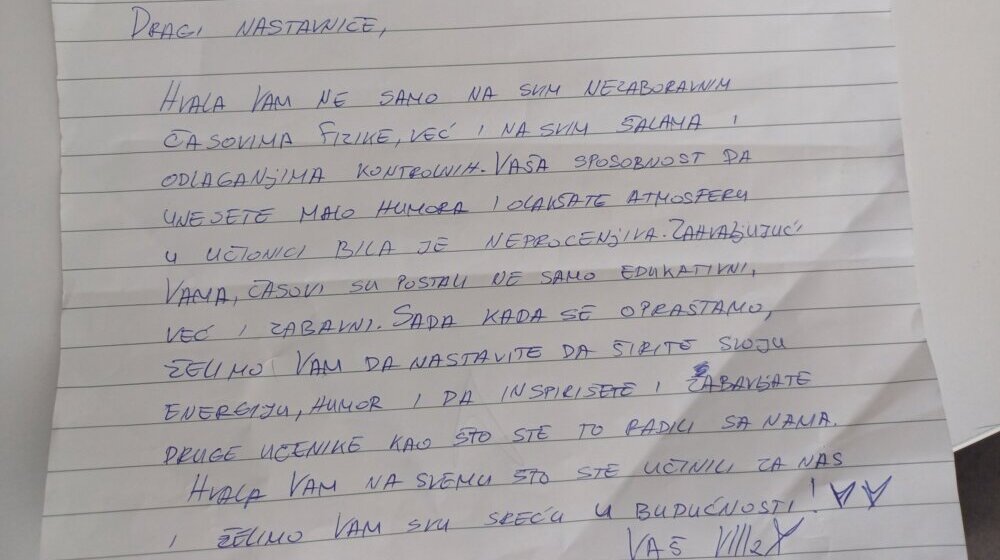 DRAGI NASTAVNICE,
HVALA VAM NE SAMO NA SVIM NEZABORAVNIM
ČASOVIMA FIZIKE, VEĆ I NA SVIM ŠALAMA I
ODLAGANJIMA KONTROLNIH. VAŠA SPOSOBNOST DA
UNESETE MALO HUMORA I OLAKŠATE ATMOSFERU
U UČIONICI BILA JE NEPROCENJIVA. ZAHVALJUJUĆI
VAMA, ČASOVI SU POSTALI NE SAMO EDUKATIVNI,
VEĆ I ZABAVNI. SADA KADA SE OPRAŠTAMO,
ŽELIMO VAM DA NASTAVITE DA ŠIRITE SVOJU
ENERGIJU, HUMOR I DA INSPIRIŠETE I ZABAVLJATE
DRUGE UČENIKE KAO ŠTO STE TO RADILI SA NAMA.
HVALA VAM NA SVEMU ŠTO STE UČINILI ZA NAS
I ŽELIMO VAM SVU SREĆU U BUDUĆNOSTI!
VAŠ VIII2